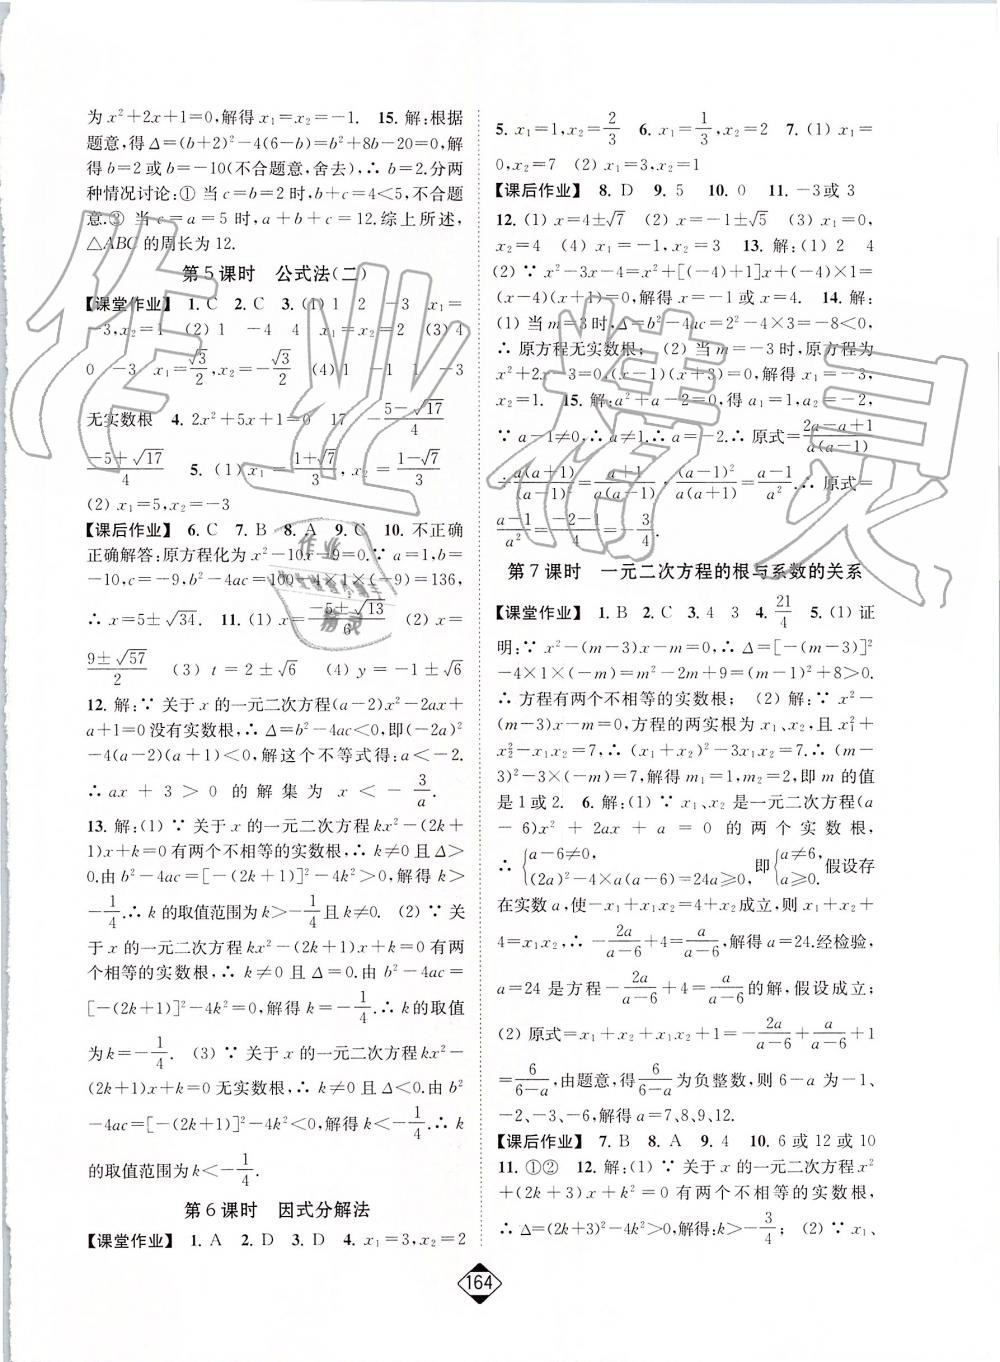 为 x²+2x+1=0,解得 x₁=x₂=-1. 15. 解:根据
题意,得 Δ=(b+2)²-4(6-b)=b²+8b-20=0,解
得 b=2 或 b=-10(不合题意,舍去),∴ b=2.分两
种情况讨论:① 当 c=b=2 时,b+c=4<5,不合题
意.② 当 c=a=5 时,a+b+c=12.综上所述,
△ABC 的周长为 12.
第 5 课时 公式法(二)
【课堂作业】 1. C 2. C 3. (1) 1 2 -3 x₁=
-3,x₂=1 (2) 1 -4 4 x₁=x₂=2 (3) 4
0 -3 x₁=√3/2,x₂=-√3/2 (4) 1 -1 1 -3
无实数根 4. 2x²+5x+1=0 17 (-5-√17)/4
(-5+√17)/4 5. (1) x₁=(1+√7)/3,x₂=(1-√7)/3
(2) x₁=5,x₂=-3
【课后作业】 6. C 7. B 8. A 9. C 10. 不正确
正确解答:原方程化为 x²-10x-9=0.∵ a=1,b=
-10,c=-9,b²-4ac=
∴ x=5±√34. 11. (1) x=(-5±√13)/6 (2) x=
(9±√57)/2 (3) t=2±√6 (4) y=-1±√6
12. 解:∵ 关于 x 的一元二次方程(a-2)x²-2ax+
a+1=0 没有实数根,∴ Δ=b²-4ac<0,即(-2a)²
-4(a-2)(a+1)<0,解这个不等式得:a<-2.
∴ ax+3>0 的解集为 x<-3/a.
13. 解:(1) ∵ 关于 x 的一元二次方程 kx²-(2k+
1)x+k=0 有两个不相等的实数根,∴ k≠0 且 Δ>
0.由 b²-4ac=[-(2k+1)]²-4k²>0,解得 k>
-1/4.∴ k 的取值范围为 k>-1/4且 k≠0. (2) ∵ 关
于 x 的一元二次方程 kx²-(2k+1)x+k=0 有两
个相等的实数根,∴ k≠0 且 Δ=0.由 b²-4ac=
[-(2k+1)]²-4k²=0,解得 k=-1/4.∴ k 的取值
为 k=-1/4. (3) ∵ 关于 x 的一元二次方程 kx²-
(2k+1)x+k=0 无实数根,∴ k≠0 且 Δ<0.由 b²
-4ac=[-(2k+1)]²-4k²<0,解得 k<-1/4.∴ k
的取值范围为 k<-1/4.
第 6 课时 因式分解法
【课堂作业】 1. A 2. D 3. D 4. x₁=3,x₂=2
5. x₁=1,x₂=2/3 6. x₁=1/3,x₂=2 7. (1) x₁=
0,x₂=7 (2) x₁=3,x₂=1
【课后作业】 8. D 9. 5 10. 0 11. -3 或 3
12. (1) x=4±√7 (2) x=-1±√5 (3) x₁=0,
x₂=4 (4) x₁=-4,x₂=3 13. 解:(1) 2 4
(2) ∵ x²-3x-4=x²+[(-4)+1]x+(-4)×1=
(x-4)(x+1)=0.∴ 解得 x₁=-1,x₂=4. 14. 解:
(1) 当 m=3 时,Δ=b²-4ac=2²-4×3=-8<0,
∴ 原方程无实数根; (2) 当 m=-3 时,原方程为
x²+2x-3=0.∴ (x-1)(x+3)=0.解得 x₁=-3,
x₂=1. 15. 解:a²+a-2=0,得 a₁=1,a₂=-2,
∵ a-1≠0,∴ a≠1.∴ a=-2.∴ 原式=(2a-a+1)/(a(a-1))
÷(a(a+1))/(a-1)²=(a+1)/(a(a-1))·(a-1)²/(a(a+1))=(a-1)/a².∴ 原式=
(a-1)/a²=(-2-1)/4=-3/4.
第 7 课时 一元二次方程的根与系数的关系
【课堂作业】 1. B 2. C 3. 4 3 4. 21/4 5. (1) 证
明:∵ x²-(m-3)x-m=0,∴ Δ=[-(m-3)]²
-4×1×(-m)=m²-2m+9=(m-1)²+8>0.
∴ 方程有两个不相等的实数根; (2) 解:∵ x²-
(m-3)x-m=0,方程的两实根为 x₁、x₂,且 x₁²+
x₂²-x₁x₂=7,∴ (x₁+x₂)²-3x₁x₂=7.∴ (m-
3)²-3×(-m)=7,解得 m₁=1,m₂=2,即 m 的值
是 1 或 2. 6. 解:(1) ∵ x₁、x₂ 是一元二次方程(a
-6)x²+2ax+a=0 的两个实数根,
∴ {a-6≠0, (2a)²-4×a(a-6)=24a≥0, 即{a≠6, a≥0. 假设存
在实数 a,使-x₁+x₁x₂=4+x₂成立,则 x₁+x₂+
4=x₁x₂,∴ -2a/(a-6)+4=a/(a-6),解得 a=24.经检验,
a=24 是方程-2a/(a-6)+4=a/(a-6)的解,假设成立;
(2) 原式=x₁+x₂+x₁x₂+1=-2a/(a-6)+a/(a-6)+1
=6/(6-a),由题意,得6/(6-a)为负整数,则 6-a 为-1、
-2、-3、-6,解得 a=7、8、9、12.
【课后作业】 7. B 8. A 9. 4 10. 6 或 12 或 10
11. ①② 12. 解:(1) ∵ 关于 x 的一元二次方程 x²
+(2k+3)x+k²=0 有两个不相等的实数根,
∴ Δ=(2k+3)²-4k²>0,解得 k>-3/4; (2) ∵ x₁、
164
作业精灵
作业
精灵